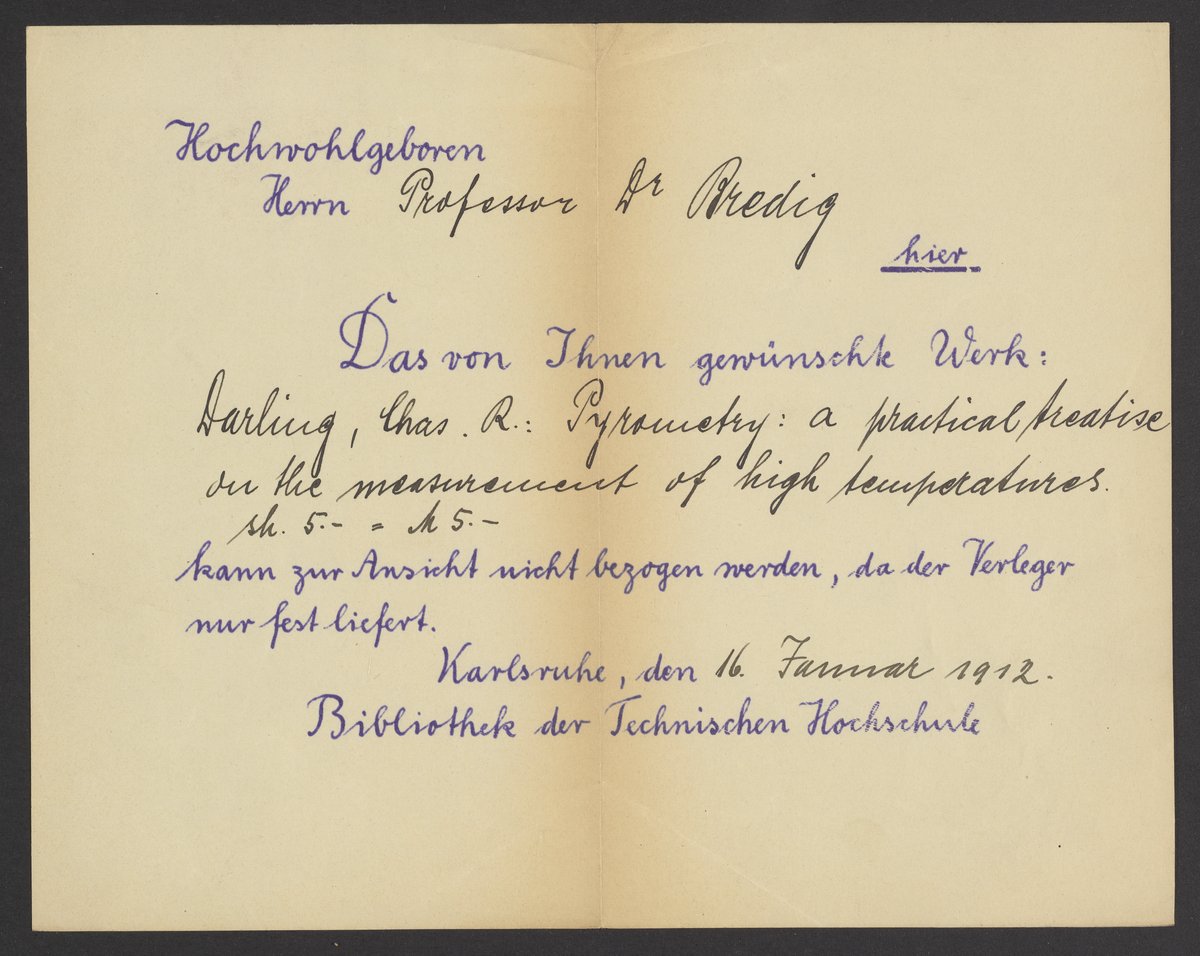 Hochwohlgeboren
Herrn Professor Dr Bredig
hier
Das von Ihnen gewünschte Werk:
Darling, Chas. R.: Pyrometry: a practical treatise
on the measurement of high temperatures.
sh. 5.- = M 5.-
kann zur Ansicht nicht bezogen werden, da der Verleger
nur fest liefert.
Karlsruhe, den 16. Januar 1912.
Bibliothek der Technischen Hochschule